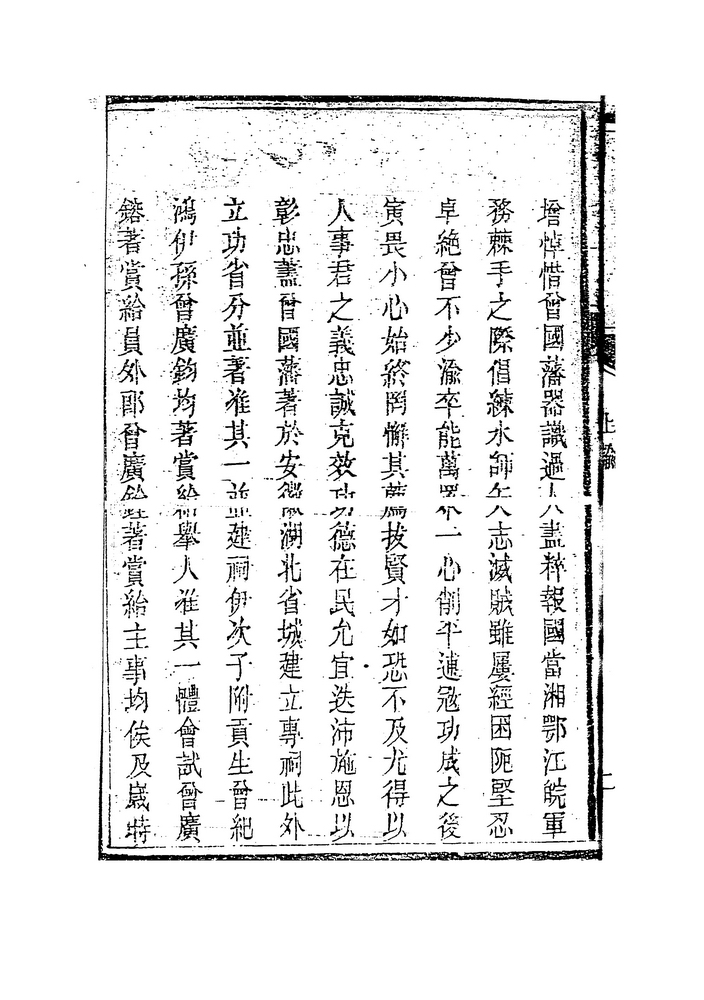 增悼惜曾國藩器識過人盡粹報國當湘鄂江皖軍
務棘手之際倡練水師矢志滅賊雖屢經困阨堅忍
卓絕曾不少渝卒能萬眾一心削平逋寇功成之後
寅畏小心始終罔懈其薦拔賢才如恐不及尤得以
人事君之義忠誠克效功德在民允宜迭沛施恩以
彰忠藎曾國藩著於安徽湖北省城建立專祠此外
立功省分並著准其一並建祠伊次子附貢生曾紀
鴻伊孫曾廣鈞均著賞給舉人准其一體會試曾廣
鎔著賞給員外郎曾廣銓著賞給主事均俟及歲時
上諭
二